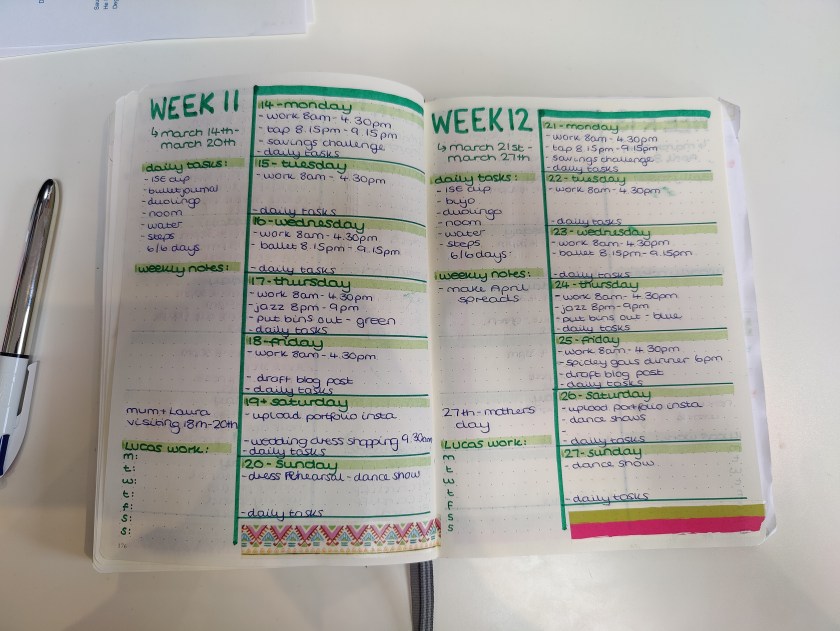 WEEK 11
↳ march 14th-
march 20th
daily tasks:
- ISE cup
- bullet journal
- duolingo
- noom
- water
- steps
6/6 days
weekly notes:
mum + Laura
visiting 18th-20th
Lucas work:
m:
t:
w:
t:
f:
s:
s:
14-monday
- work 8am-4.30pm
- tap 8.15pm-9.15pm
- savings challenge
- daily tasks
15-tuesday
- work 8am-4.30pm
- daily tasks
16-wednesday
- work 8am-4.30pm
- ballet 8.15pm-9.15pm
- daily tasks
17-thursday
- work 8am-4.30pm
- jazz 8pm-9pm
- put bins out - green
- daily tasks
18-friday
- work 8am-4.30pm
- draft blog post
- daily tasks
19-saturday
- upload portfolio insta
- wedding dress shopping 9.30am
- daily tasks
20-sunday
- dress rehearsal - dance show
- daily tasks
WEEK 12
↳ march 21st-
march 27th
daily tasks:
- ISE cup
- bujo
- duolingo
- noom
- water
- steps
6/6 days:
weekly notes:
- make April
spreads
27th-mothers
day
Lucas work:
m
t
w
t
f
s
s
21-monday
- work 8am-4.30pm
- tap 8.15pm-9.15pm
- savings challenge
- daily tasks
22-tuesday
- work 8am-4.30pm
- daily tasks
23-wednesday
- work 8am-4.30pm
- ballet 8.15pm-9.15pm
- daily tasks
24-thursday
- work 8am-4.30pm
- jazz 8pm-9pm
- put bins out - blue
- daily tasks
25-friday
- work 8am-4.30pm
- spidey gals dinner 6pm
- draft blog post
- daily tasks
26-saturday
- upload portfolio insta
- dance shows
- daily tasks
27-sunday
- dance show
- daily tasks